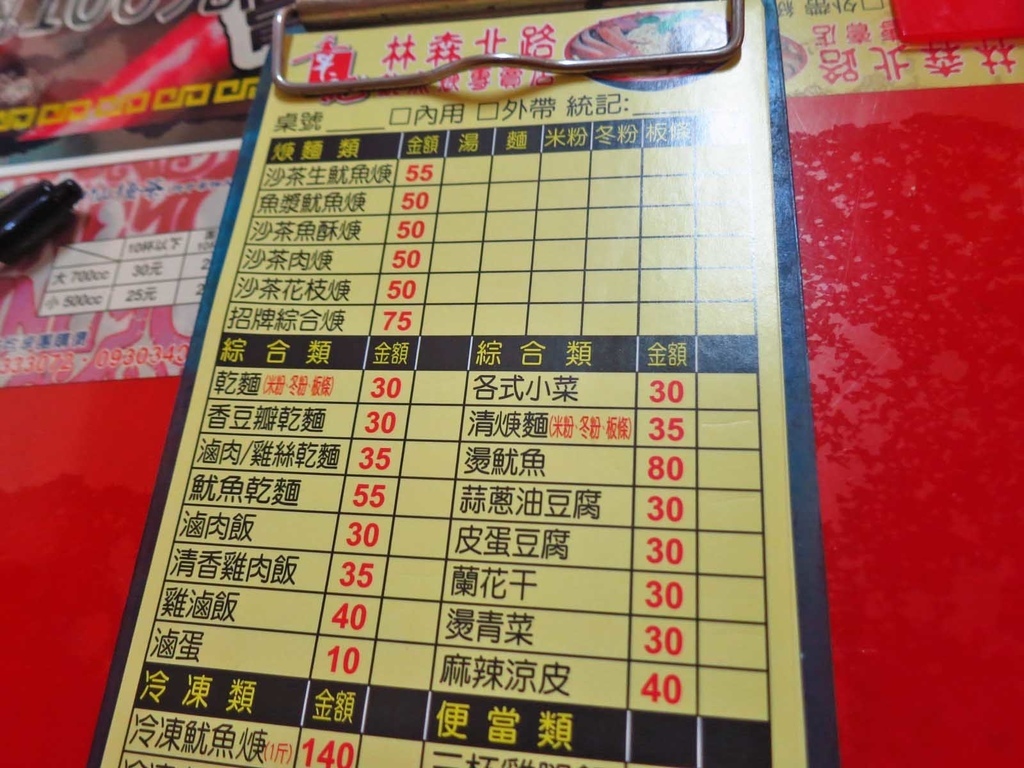 林森北路
桌號 ____ □內用 □外帶 統記:____
焿麵類 金額 湯 麵 米粉 冬粉 板條
沙茶生魷魚焿 55
魚漿魷魚焿 50
沙茶魚酥焿 50
沙茶肉焿 50
沙茶花枝焿 50
招牌綜合焿 75
綜合類 金額 綜合類 金額
乾麵(米粉·冬粉·板條) 30 各式小菜 30
香豆瓣乾麵 30 清焿麵(米粉·冬粉·板條) 35
滷肉/雞絲乾麵 35 燙魷魚 80
魷魚乾麵 55 蒜蔥油豆腐 30
滷肉飯 30 皮蛋豆腐 30
清香雞肉飯 35 蘭花干 30
雞滷飯 40 燙青菜 30
滷蛋 10 麻辣涼皮 40
冷凍類 金額 便當類
冷凍魷魚焿(1斤) 140
10杯以下
大 700cc 30元
小 500cc 25元
林森北路